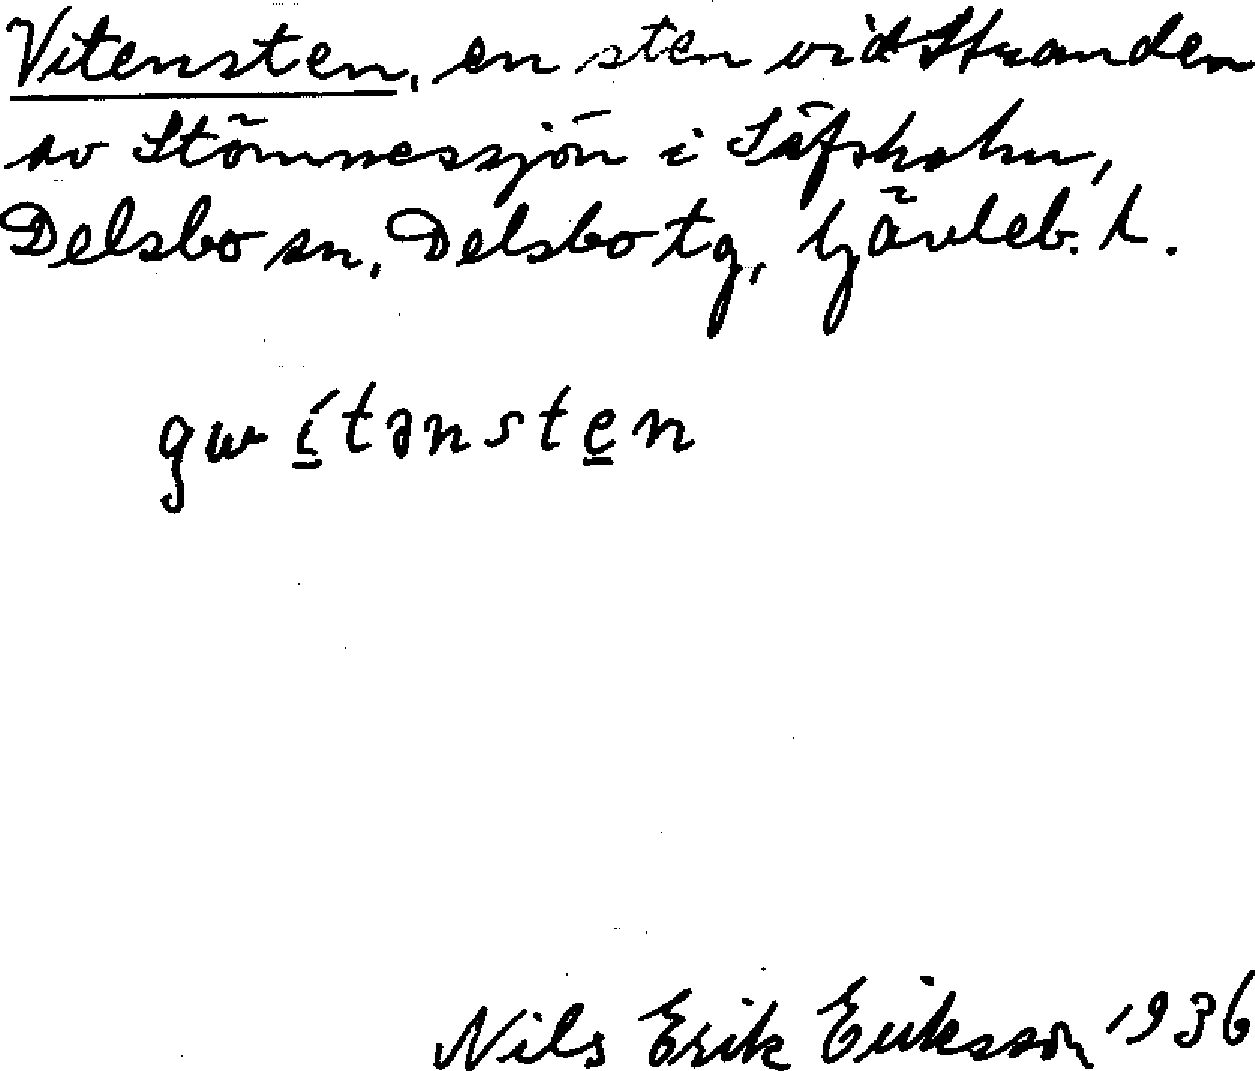 Vitensten, en sten vid Stranden
av Stömnessjön i Säfsholm,
Delsbo sn, Delsbo tg, Gävleb. l.
gwítənsten
Nils Erik Eriksson 1936